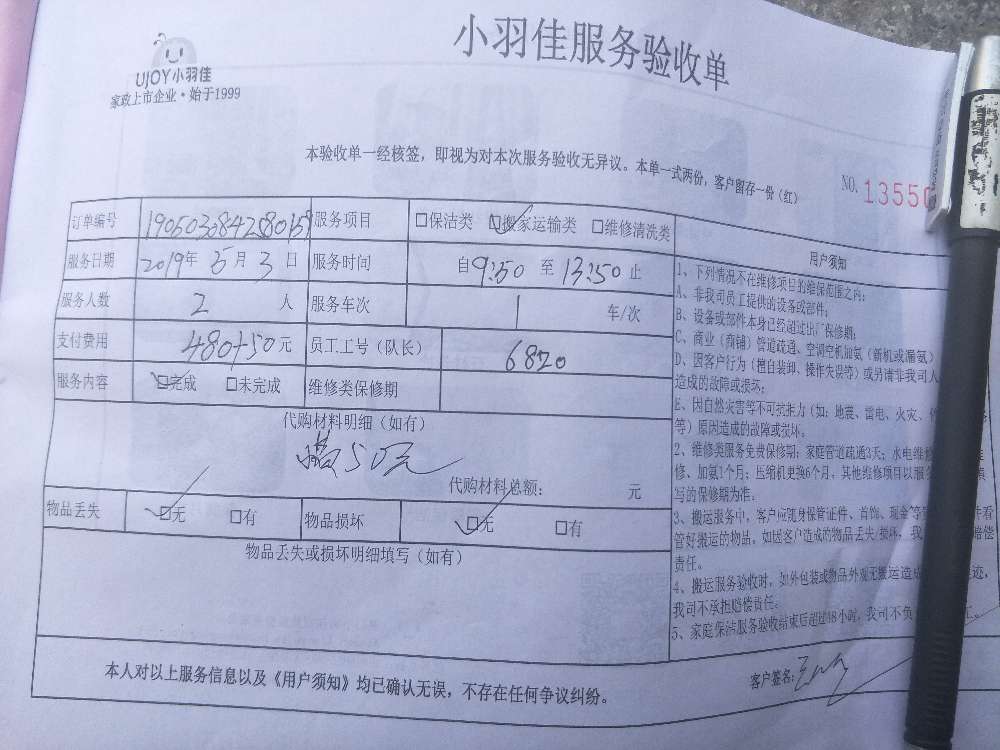 小羽佳服务验收单
UJOY小羽佳
家政上市企业·始于1999
本验收单一经核签，即视为对本次服务验收无异议。本单一式两份，客户留存一份（红）
NO. 13550
订单编号 服务项目 □保洁类 ☑搬家运输类 □维修清洗类
服务日期 2019年5月3日 服务时间 自9:50至13:50止
服务人数 2人 服务车次 1 车/次
支付费用 480+50元 员工工号（队长） 6820
服务内容 ☑完成 □未完成 维修类保修期
代购材料明细（如有）
50元
代购材料总额： 元
物品丢失 ☑无 □有 物品损坏 ☑无 □有
物品丢失或损坏明细填写（如有）
用户须知
1、下列情况不在维修项目的维保范围之内：
A、非我司员工提供的设备或部件；
B、设备或部件本身已经超过出厂保修期；
C、商业（商铺）管道疏通、空调空机加氨（新机或漏氨）
D、因客户行为（擅自装卸、操作失误等）或另请非我司人
造成的故障或损坏；
E、因自然灾害等不可抗拒力（如：地震、雷电、火灾、
等）原因造成的故障或损坏。
2、维修类服务免费保修期：家庭管道疏通3天；水电维
修、加氨1个月；压缩机更换6个月，其他维修项目以服
写的保修期为准。
3、搬运服务中，客户应随身保管证件、首饰、现金等
管好搬运的物品，如因客户造成的物品丢失/损坏，我 赔偿
责任。
4、搬运服务验收时，如外包装或物品外观无搬运造成 迹，
我司不承担赔偿责任。
5、家庭保洁服务验收结束后超过48小时，我司不负 工。
本人对以上服务信息以及《用户须知》均已确认无误，不存在任何争议纠纷。
客户签名：